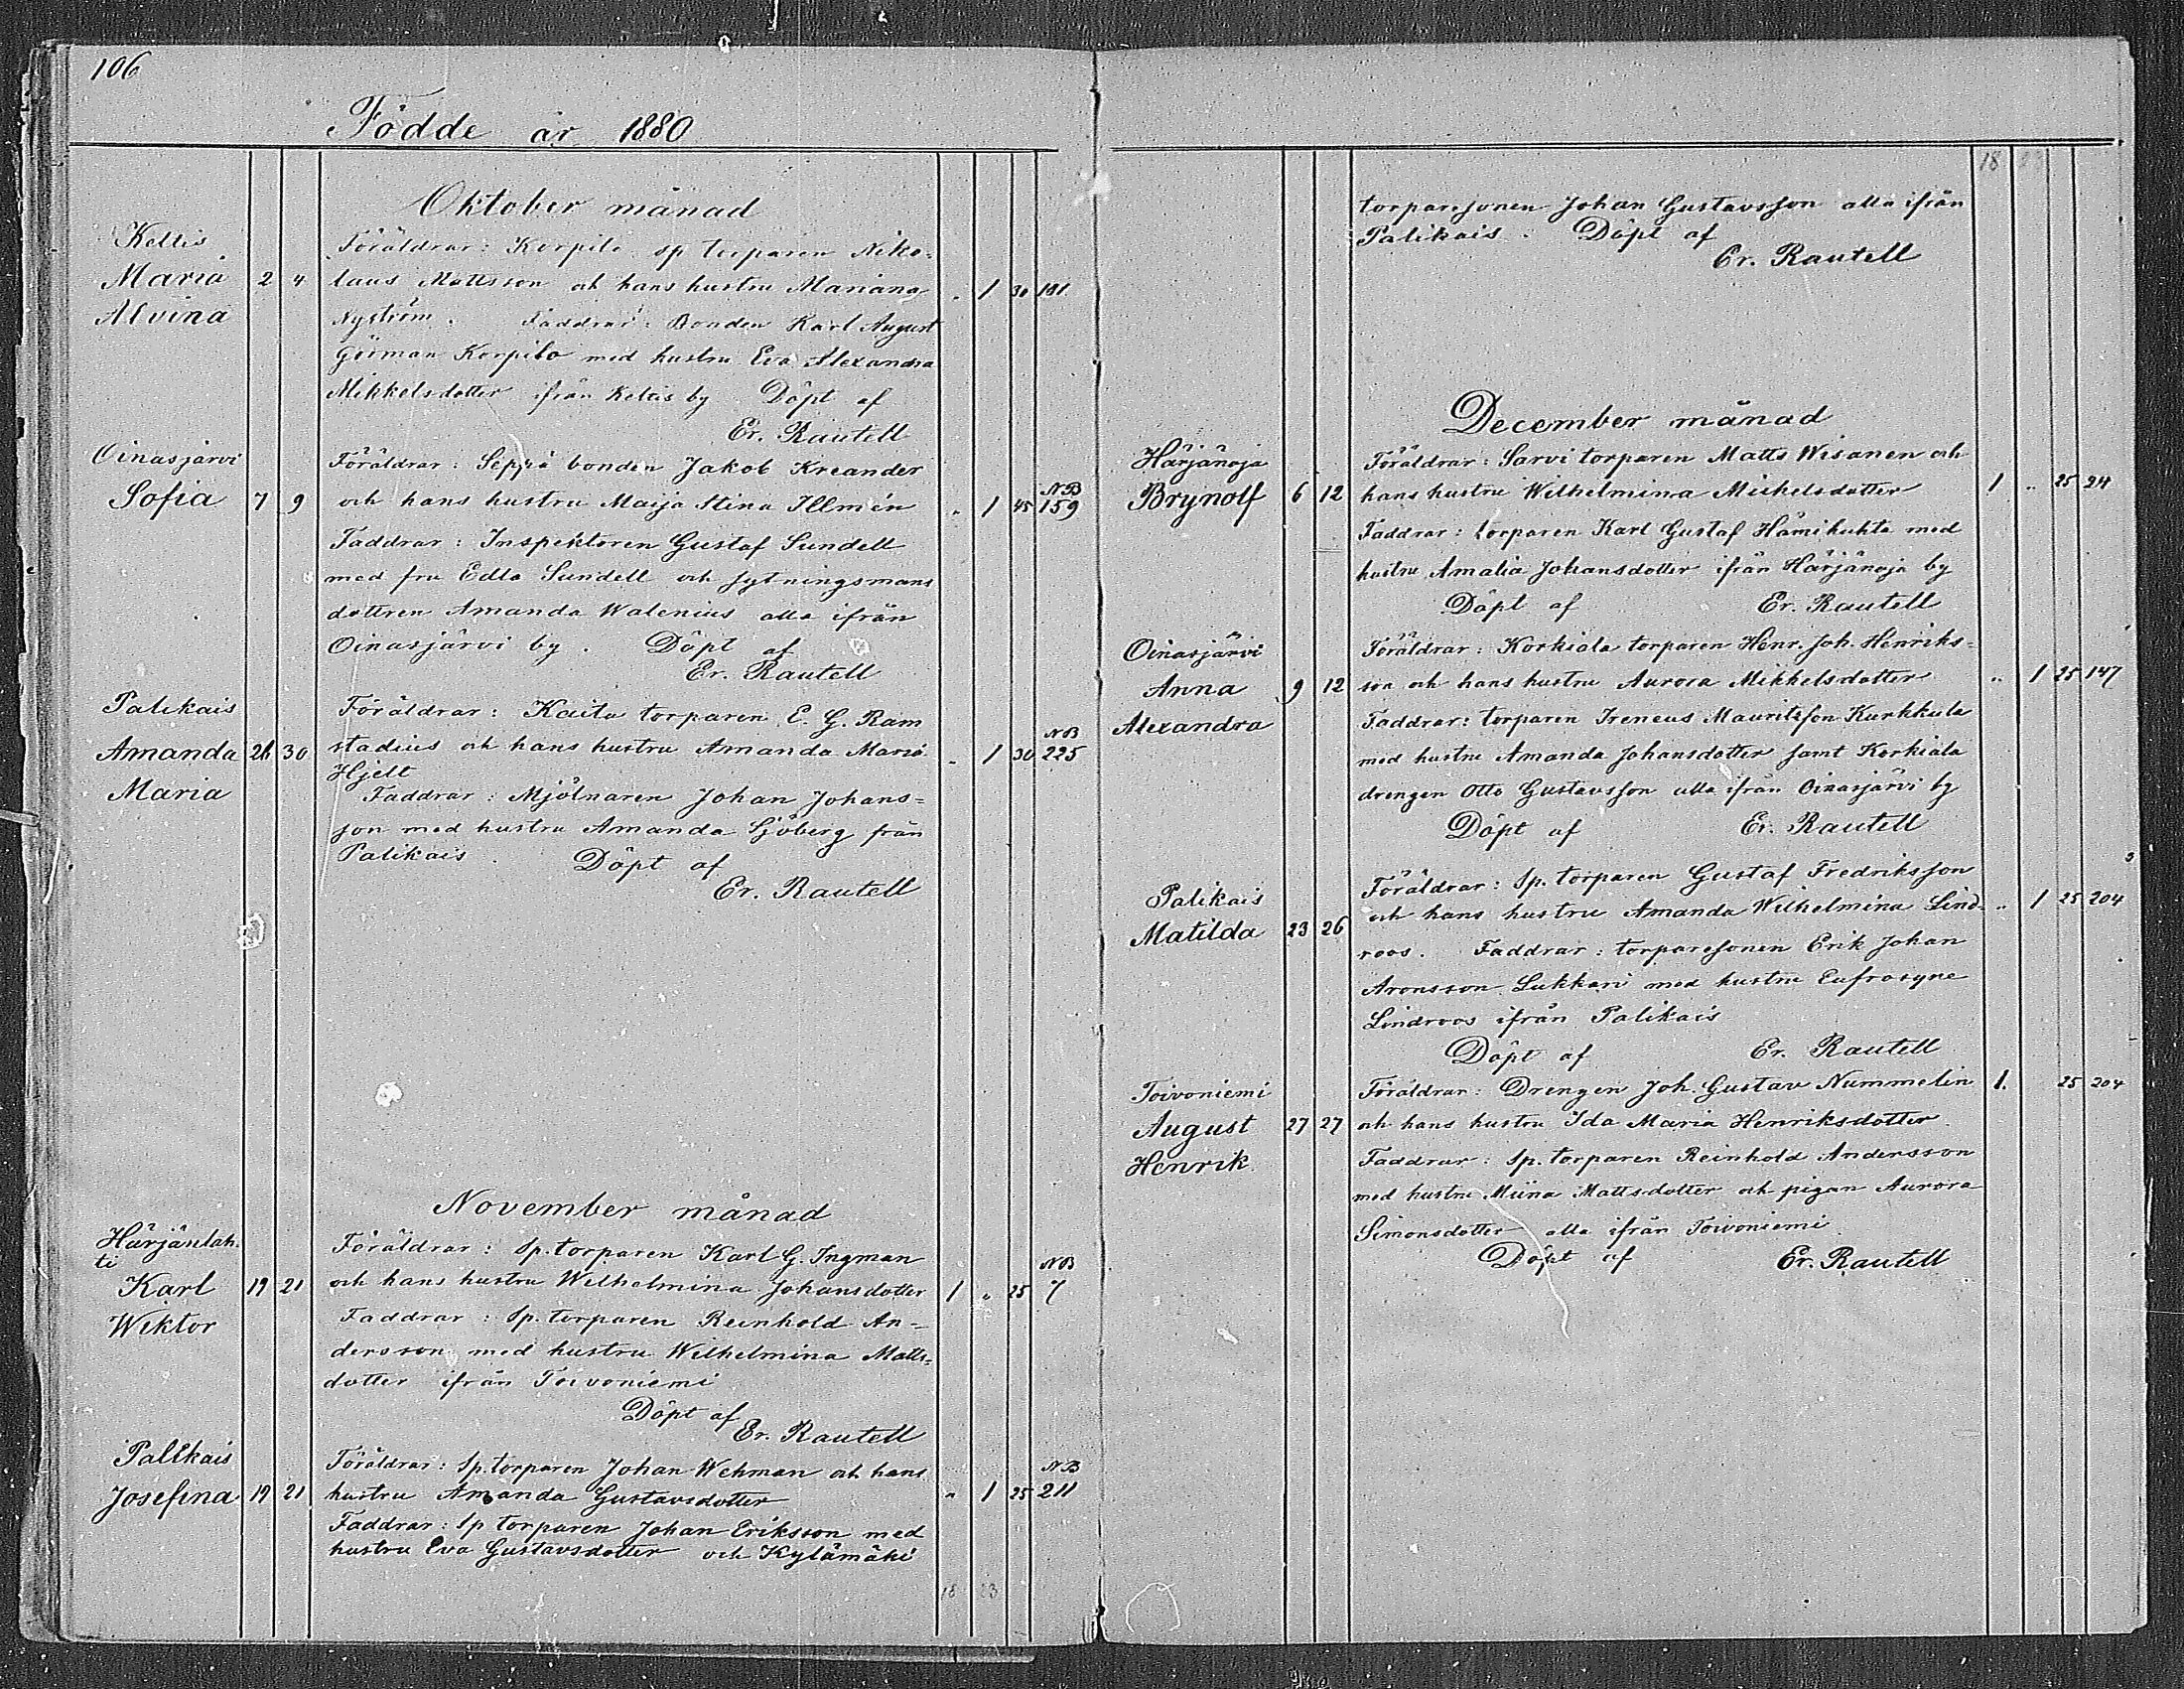 106
Födde år 1880
Oktober månad
Keltis
Föräldrar: Korpilo sp torparen Niko-
Maria 2 4 laus Mattsson och hans hustru Mariana „ 1 30 181
Alvina
Nyström. Faddrar: Bonden Karl August
Görman Korpilo med hustru Eva Alexandra
Mikkelsdotter ifrån Keltis by Döpt af
Er. Rautell
Oinasjärvi
Föräldrar: Seppä bonden Jakob Kreander
NB
Sofia 7 9 och hans hustru Maija Stina Illmén „ 1 45 159
Faddrar: Inspektoren Gustaf Sundell
med fru Edla Sundell och sytningsmans
dottren Amanda Walenius alla ifrån
Oinasjärvi by. Döpt af
Er. Rautell
Palikais
Föräldrar: Kaita torparen E. G. Ram
NB
Amanda 26 30 stadius och hans hustru Amanda Maria „ 1 30 225
Hjelt
Maria
Faddrar: Mjölnaren Johan Johans=
son med hustru Amanda Sjöberg från
Palikais. Döpt af
Er. Rautell
November månad
Härjänlah-
ti
Föräldrar: Sp. torparen Karl G. Ingman
NB
Karl 19 21 och hans hustru Wilhelmina Johansdotter 1 „ 25 7
Wiktor
Faddrar: Sp. torparen Reinhold An=
dersson med hustru Wilhelmina Matts=
dotter ifrån Toivoniemi
Döpt af
Er. Rautell
Palikais
Föräldrar: Sp. torparen Johan Wehman och hans
NB
Josefina 19 21 hustru Amanda Gustavsdotter „ 1 25 211
Faddrar: Sp torparen Johan Eriksson med
hustru Eva Gustavsdotter och Kylämäki
18 23
18 23
torparesonen Johan Gustavsson alla ifrån
Palikais. Döpt af
Er. Rautell
December månad
Härjänoja
Föräldrar: Sarvi torparen Matts Wisanen och
Brynolf 6 12 hans hustru Wilhelmina Mickelsdotter 1 „ 25 24
Faddrar: torparen Karl Gustaf Hämikuhta med
hustru Amalia Johansdotter ifrån Härjänoja by
Döpt af Er. Rautell
Oinasjärvi
Föräldrar: Korkiala torparen Henr. Joh. Henriks=
Anna 9 12 son och hans hustru Aurora Mikkelsdotter „ 1 25 147
Alexandra
Faddrar: torparen Ireneus Mauritsson Kurkkula
med hustru Amanda Johansdotter samt Korkiala
drengen Otto Gustavsson alla ifrån Oinasjärvi by
Döpt af Er. Rautell
Palikais
Föräldrar: Sp. torparen Gustaf Fredriksson
och hans hustru Amanda Wilhelmina Lind- „ 1 25 204
Matilda 23 26
roos. Faddrar: torparesonen Erik Johan
Aronsson Lukkari med hustru Eufrosyne
Lindroos ifrån Palikais
Döpt af Er. Rautell
Toivoniemi
Föräldrar: Drengen Joh. Gustav Nummelin 1. 25 204
August 27 27 och hans hustru Ida Maria Henriksdotter.
Henrik
Faddrar: Sp. torparen Reinhold Andersson
med hustru Miina Mattsdotter och pigan Aurora
Simonsdotter alla ifrån Toivoniemi
Döpt af Er. Rautell